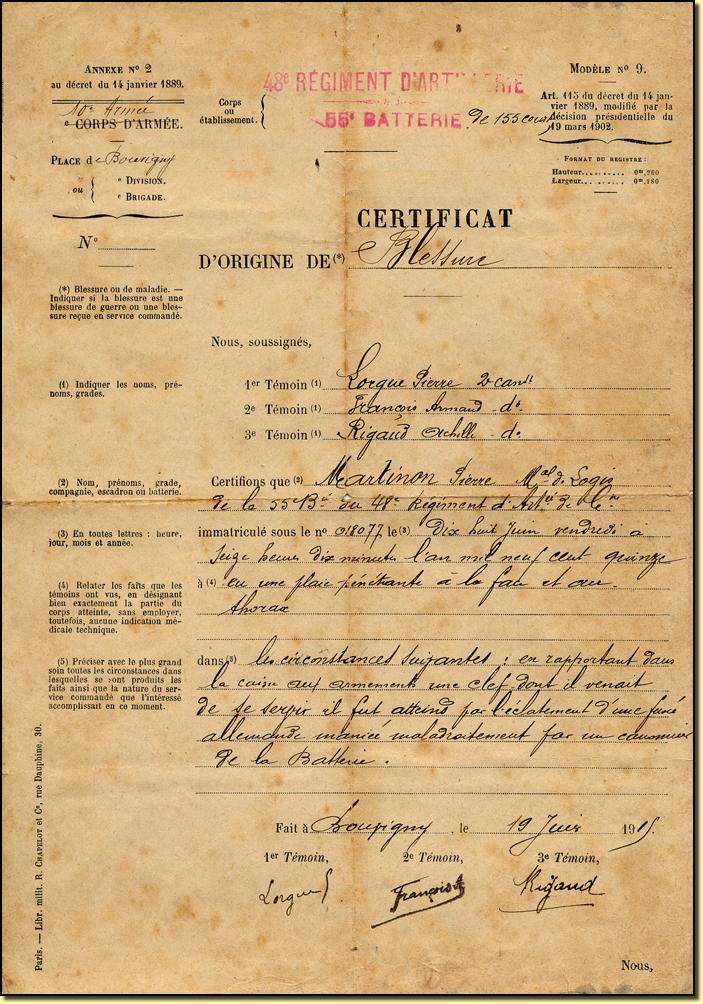 ANNEXE Nº 2
au décret du 14 janvier 1889.
10e Armée
e CORPS D'ARMÉE.
PLACE de Bouvigny
ou
e DIVISION.
e BRIGADE.
Nº
48e RÉGIMENT D'ARTILLERIE
Corps
ou
établissement.
55e BATTERIE de 155 court
MODÈLE Nº 9.
Art. 113 du décret du 14 jan-
vier 1889, modifié par la
décision présidentielle du
19 mars 1902.
FORMAT DU REGISTRE :
Hauteur........ 0m,260
Largeur........ 0m,180
CERTIFICAT
D'ORIGINE DE(*) Blessure
(*) Blessure ou de maladie. —
Indiquer si la blessure est une
blessure de guerre ou une bles-
sure reçue en service commandé.
Nous, soussignés,
(1) Indiquer les noms, pré-
noms, grades.
1er Témoin (1) Lorgue Pierre 2e cannr
2e Témoin (1) François Armand do
3e Témoin (1) Rigaud Achille do
(2) Nom, prénoms, grade,
compagnie, escadron ou batterie.
Certifions que (2) Martinon Pierre Mal de Logis
de la 55e Bie du 48e Régiment d'Artie de Cne
(3) En toutes lettres : heure,
jour, mois et année.
immatriculé sous le nº 018077 le(3) Dix huit Juin vendredi à
seize heures dix minutes l'an mil neuf cent quinze
(4) Relater les faits que les
témoins ont vus, en désignant
bien exactement la partie du
corps atteinte, sans employer,
toutefois, aucune indication mé-
dicale technique.
à (4) eu une plaie pénétrante à la face et au
thorax
(5) Préciser avec le plus grand
soin toutes les circonstances dans
lesquelles se sont produits les
faits ainsi que la nature du ser-
vice commandé que l'intéressé
accomplissait en ce moment.
dans(5) les circonstances suivantes : en rapportant dans
la caisse aux armements une clef dont il venait
de se servir il fut atteind par l'éclatement d'une fusée
allemande maniée maladroitement par un canonnier
de la Batterie.
Fait à Bouvigny, le 19 Juin 1915.
1er Témoin, 2e Témoin, 3e Témoin,
Lorgue François A Rigaud
Paris. — Libr. milit. R. CHAPELOT et Ce, rue Dauphine, 30.
Nous,